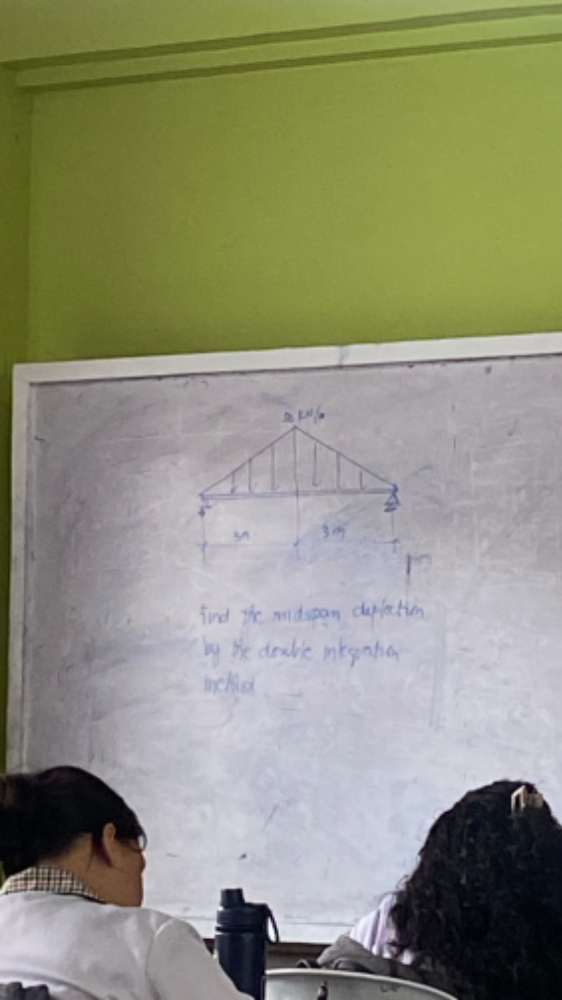 kN/m
3m
3m
Find the midspan deflection
by the double integration
method